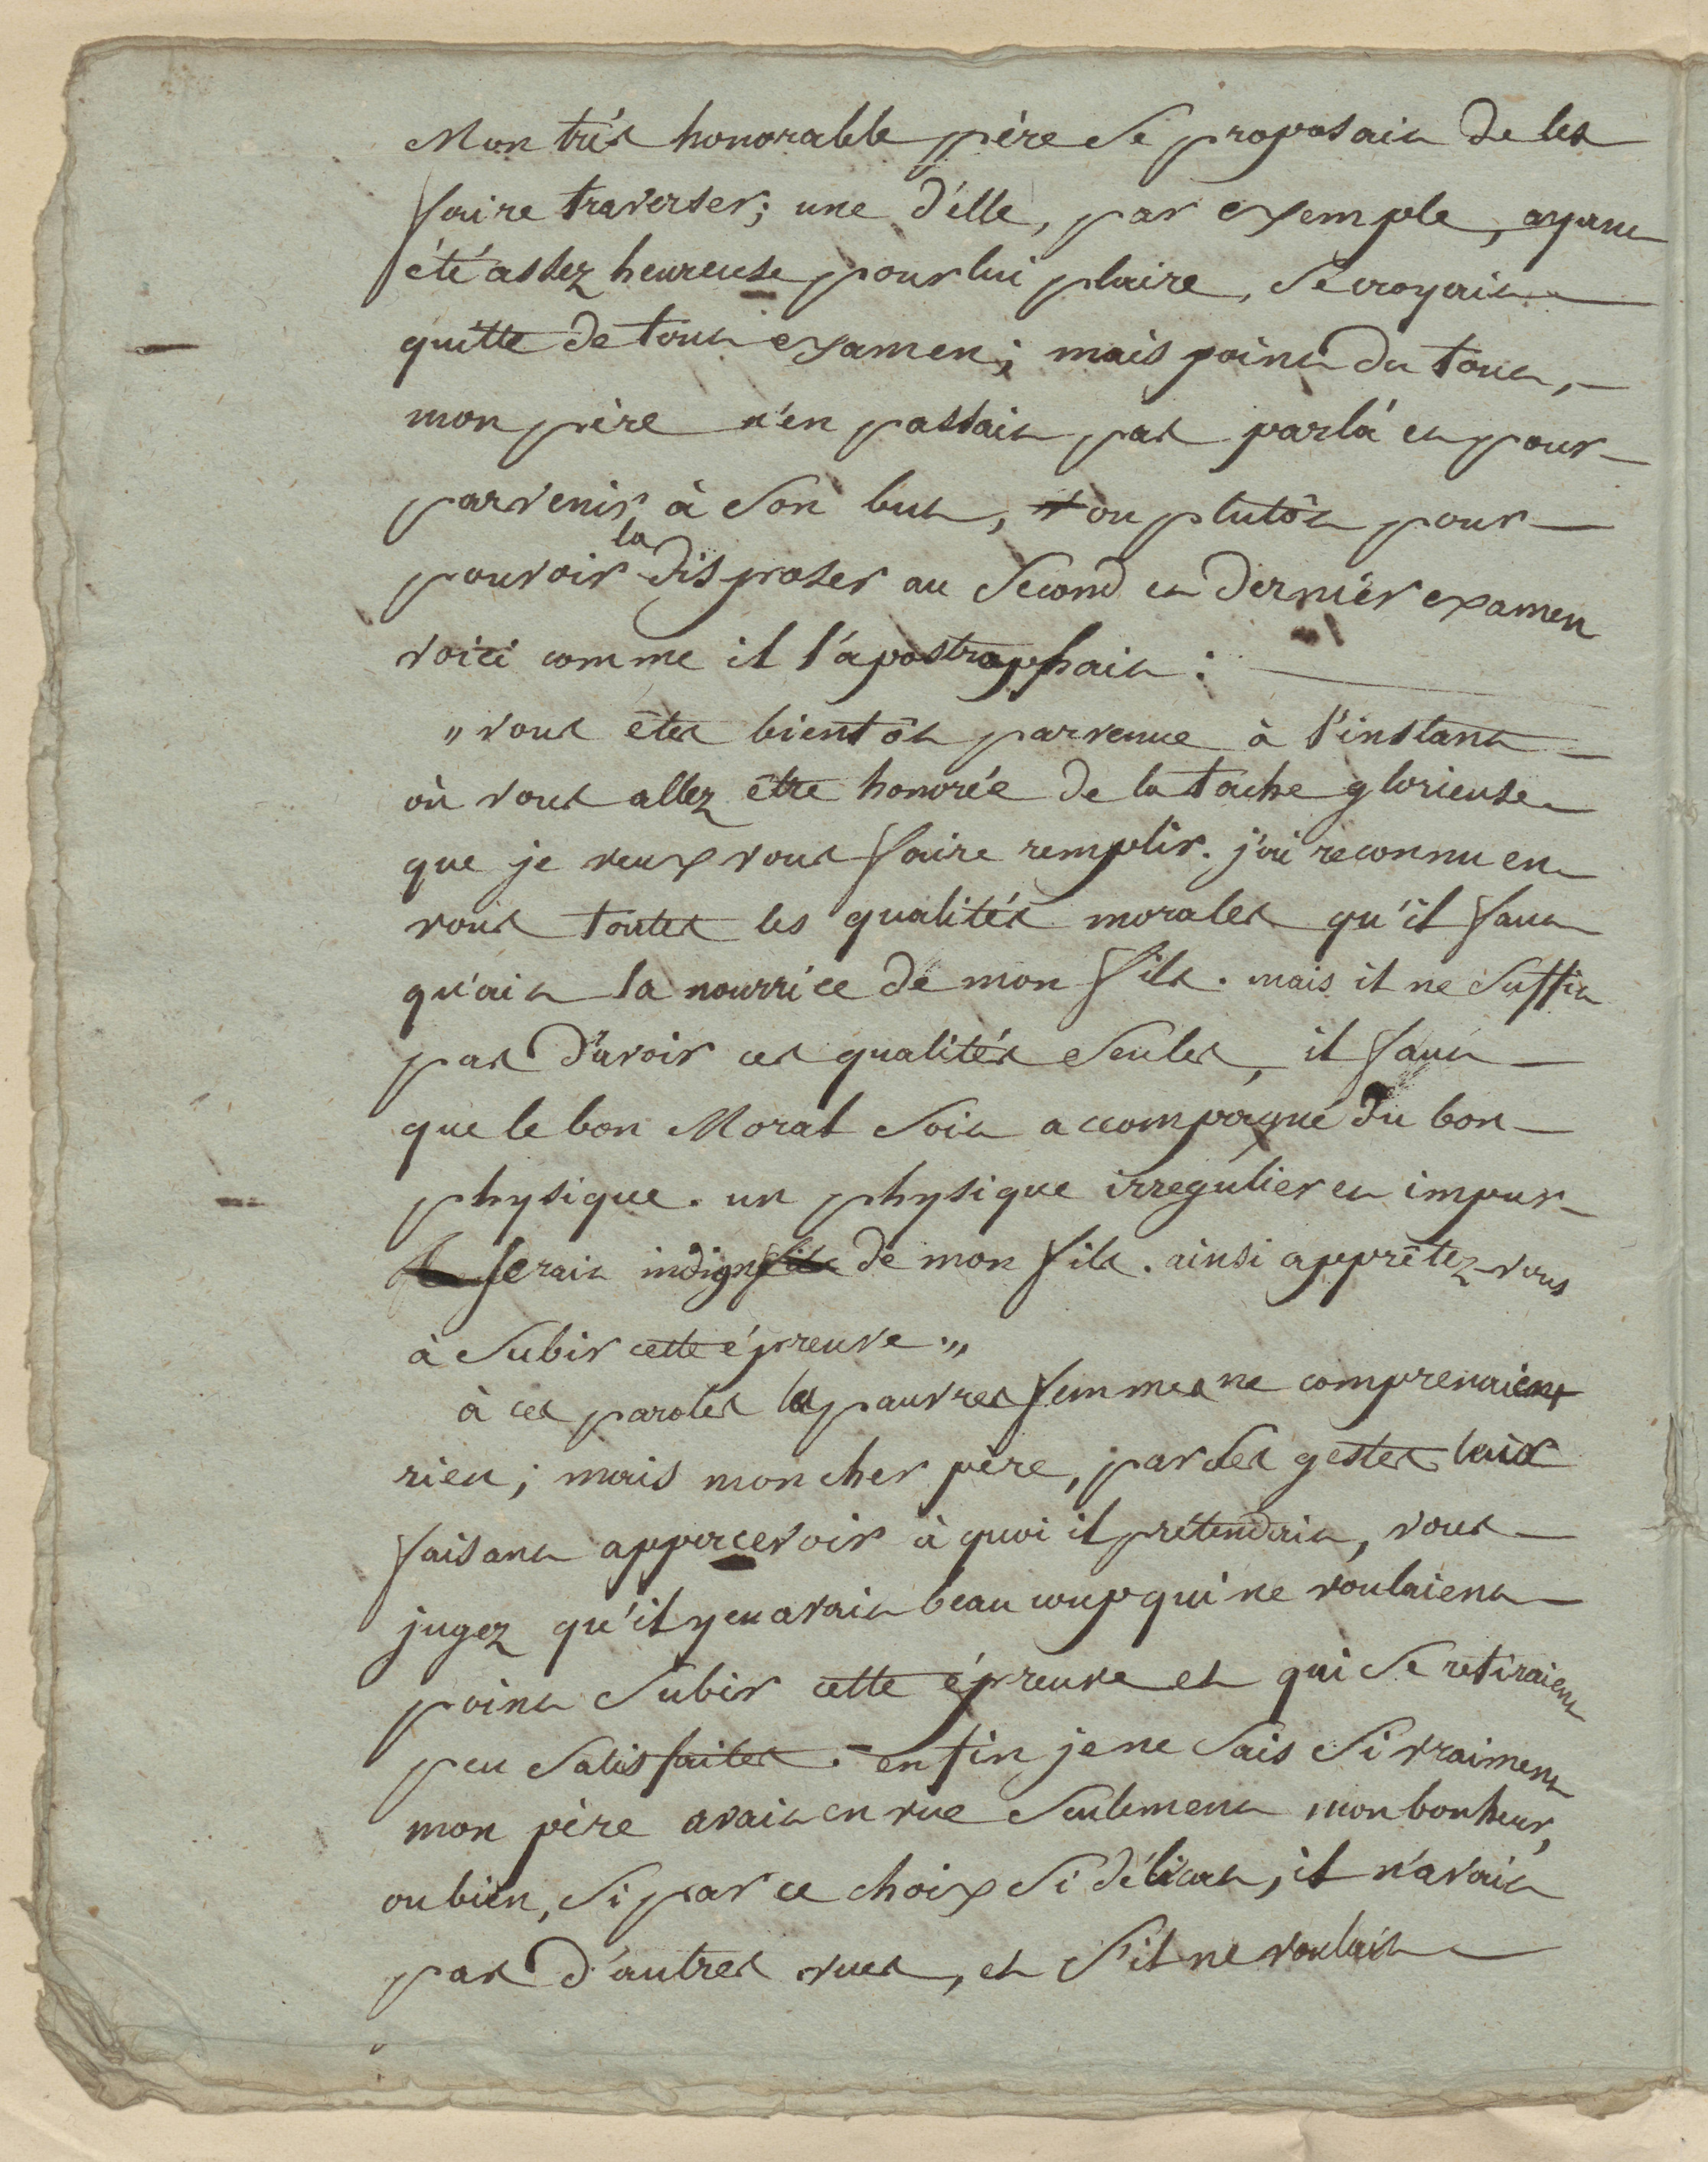 Mon trés honorable père se proposait de les
faire traverser; une d'élle, par exemple, ayant
été assez heureuse pour lui plaire, se croyait
quitte de tout examen; mais point du tout,
mon père n'en passait pas parlà et pour
parvenir à son but, ou plutôt pour
pouvoir la disposer au second et dernier examen
voici comme il l'apostrophait :
„ vous êtes bientôt parvenue à l'instant
où vous allez être honorée de la tache glorieuse
que je veux vous faire remplir. j'ai reconnu en
vous toutes les qualités morales qu'il faut
qu'ait la nourrice de mon fils. mais il ne suffit
pas d'avoir ces qualités seules, il faut
que le bon Moral soit accompagné du bon
physique. un physique irregulier et impur
serait indigne de mon fils. ainsi apprêtez-vous
à subir cette épreuve „
à ces paroles les pauvres femmes ne comprenaient
rien; mais mon cher père, par ses gestes leur
faisant appercevoir à quoi il prétendait, vous
jugez qu'il y en avait beaucoup qui ne voulaient
point subir cette épreuve et qui se retiraient
peu satisfaites. enfin je ne sais si vraiment
mon père avait en vue seulement mon bonheur,
ou bien, si par ce choix si délicat, il n'avait
pas d'autres vues, et s'il ne voulait